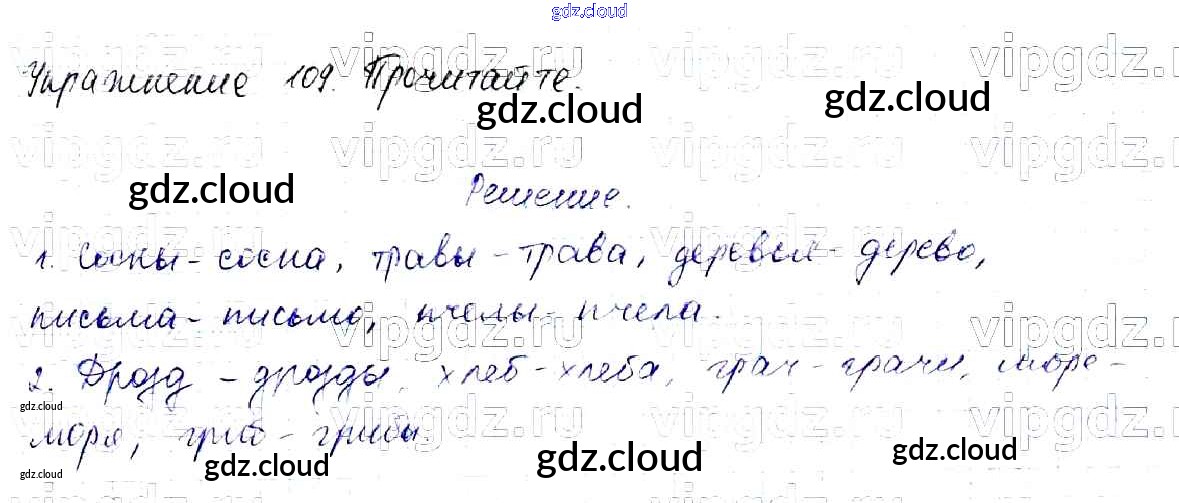 gdz.cloud
Упражнение 109. Прочитайте.
gdz.cloud gdz.cloud
gdz.cloud
Решение.
1. Сосны - сосна, травы - трава, деревья - дерево,
письма - письмо, пчелы - пчела.
2. Дрозд - дрозды, хлеб - хлеба, грач - грачи, море -
gdz.cloud
моря, гриб - грибы.
gdz.cloud gdz.cloud gdz.cloud
gdz.cloud
vipgdz.ru vipgdz.ru vipgdz.ru vipgdz.ru
vipgdz.ru vipgdz.ru vipgdz.ru vipgdz.ru
vipgdz.ru vipgdz.ru vipgdz.ru vipgdz.ru
vipgdz.ru vipgdz.ru vipgdz.ru vipgdz.ru
vipgdz.ru vipgdz.ru vipgdz.ru vipgdz.ru